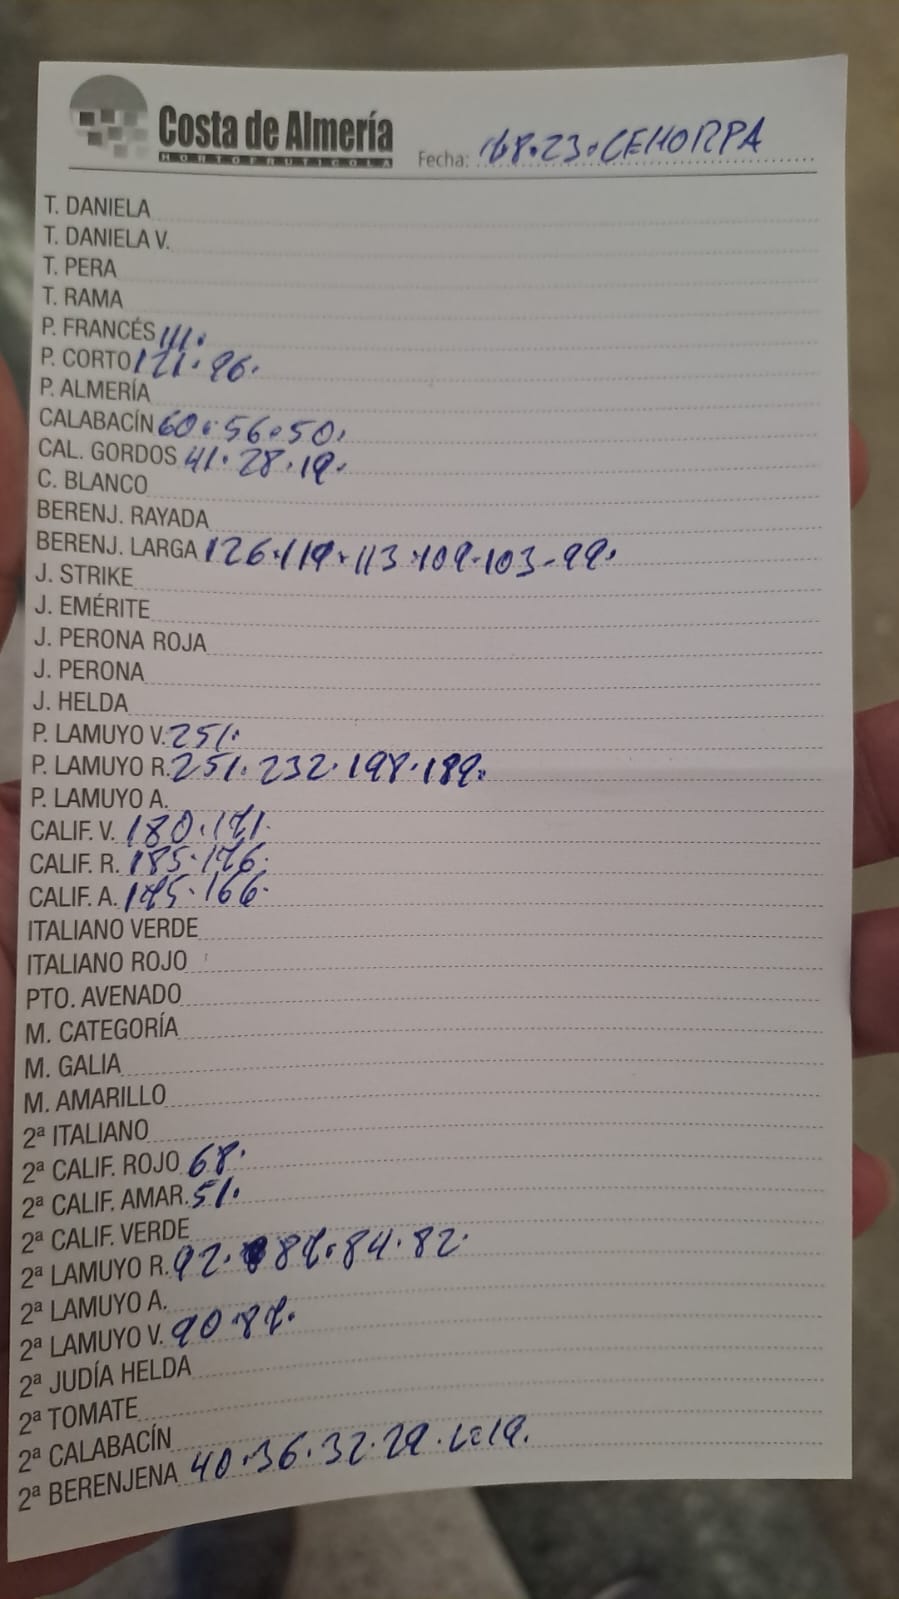 Costa de Almería
HORTOFRUTICOLA
Fecha: 168.23.CEHORPA
T. DANIELA
T. DANIELA V.
T. PERA
T. RAMA
P. FRANCÉS 111.
P. CORTO 121.96.
P. ALMERÍA
CALABACÍN 60.56.50.
CAL. GORDOS 41.28.19.
C. BLANCO
BERENJ. RAYADA
BERENJ. LARGA 126.119.113.109.103-99.
J. STRIKE
J. EMÉRITE
J. PERONA ROJA
J. PERONA
J. HELDA
P. LAMUYO V. 251.
P. LAMUYO R. 251.232.198.189.
P. LAMUYO A.
CALIF. V. 180.171.
CALIF. R. 185.176.
CALIF. A. 175.166.
ITALIANO VERDE
ITALIANO ROJO
PTO. AVENADO
M. CATEGORÍA
M. GALIA
M. AMARILLO
2ª ITALIANO
2ª CALIF. ROJO 68.
2ª CALIF. AMAR. 51.
2ª CALIF. VERDE
2ª LAMUYO R. 92. 87.84.82.
2ª LAMUYO A.
2ª LAMUYO V. 90.87.
2ª JUDÍA HELDA
2ª TOMATE
2ª CALABACÍN
2ª BERENJENA 40.36.32.29. 19.